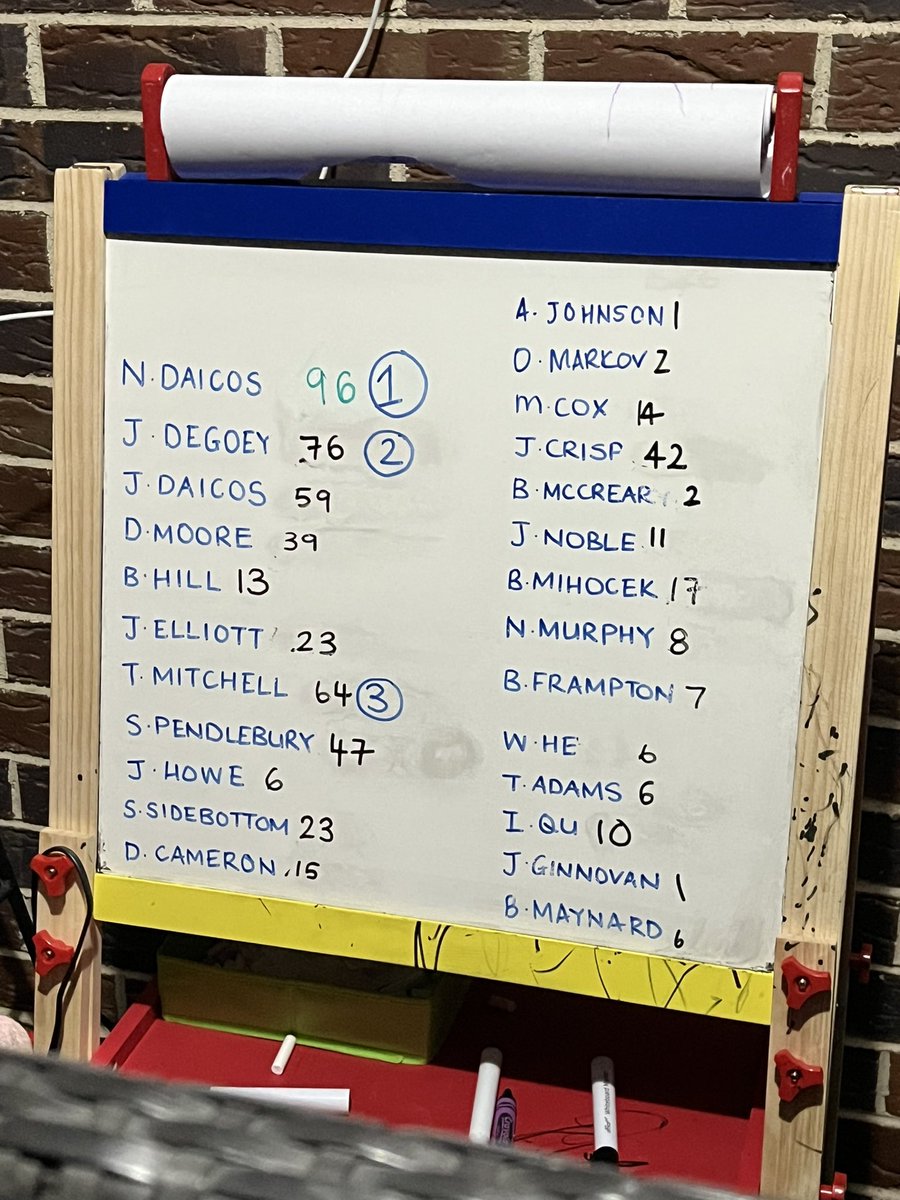 N. DAICOS 96 1
J. DEGOEY 76 2
J. DAICOS 59
D. MOORE 39
B. HILL 13
J. ELLIOTT 23
T. MITCHELL 64 3
S. PENDLEBURY 47
J. HOWE 6
S. SIDEBOTTOM 23
D. CAMERON 15
A. JOHNSON 1
O. MARKOV 2
M. COX 14
J. CRISP 42
B. MCCREARY 2
J. NOBLE 11
B. MIHOCEK 17
N. MURPHY 8
B. FRAMPTON 7
W. HE 6
T. ADAMS 6
I. QU 10
J. GINNOVAN 1
B. MAYNARD 6